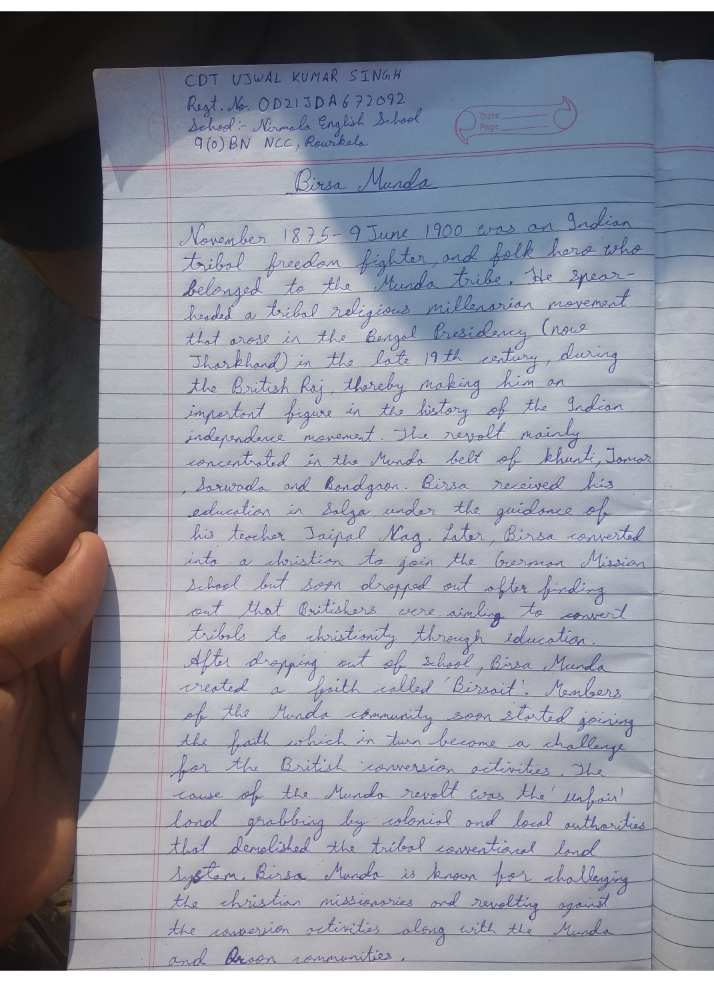 CDT UJWAL KUMAR SINGH
Regt. No. OD21JDA672092
School:- Nirmala English School
9(O) BN NCC, Rourkela
Date
Page
Birsa Munda
November 1875-9 June 1900 was an Indian
tribal freedom fighter, and folk hero who
belonged to the Munda tribe. He spear-
headed a tribal religious millenarian movement
that arose in the Bengal Presidency (now
Jharkhand) in the late 19th century, during
the British Raj, thereby making him an
important figure in the history of the Indian
independence movement. The revolt mainly
concentrated in the Munda belt of Khunti, Tamar
, Sarwada and Bandgaon. Birsa received his
education in Salga under the guidance of
his teacher Jaipal Nag. Later, Birsa converted
into a christian to join the German Mission
school but soon dropped out after finding
out that Britishers were aimling to convert
tribals to christinity through education.
After dropping out of school, Birsa Munda
created a faith called 'Birsait'. Members
of the Munda community soon started joining
the faith which in turn become a challenge
for the British conversion activities. The
cause of the Munda revolt was the 'unfair'
land grabbing by colonial and local authorities
that demolished the tribal conventional land
system. Birsa Munda is known for challenging
the christian missionaries and revolting against
the conversion activities along with the Munda
and Oraon communities.